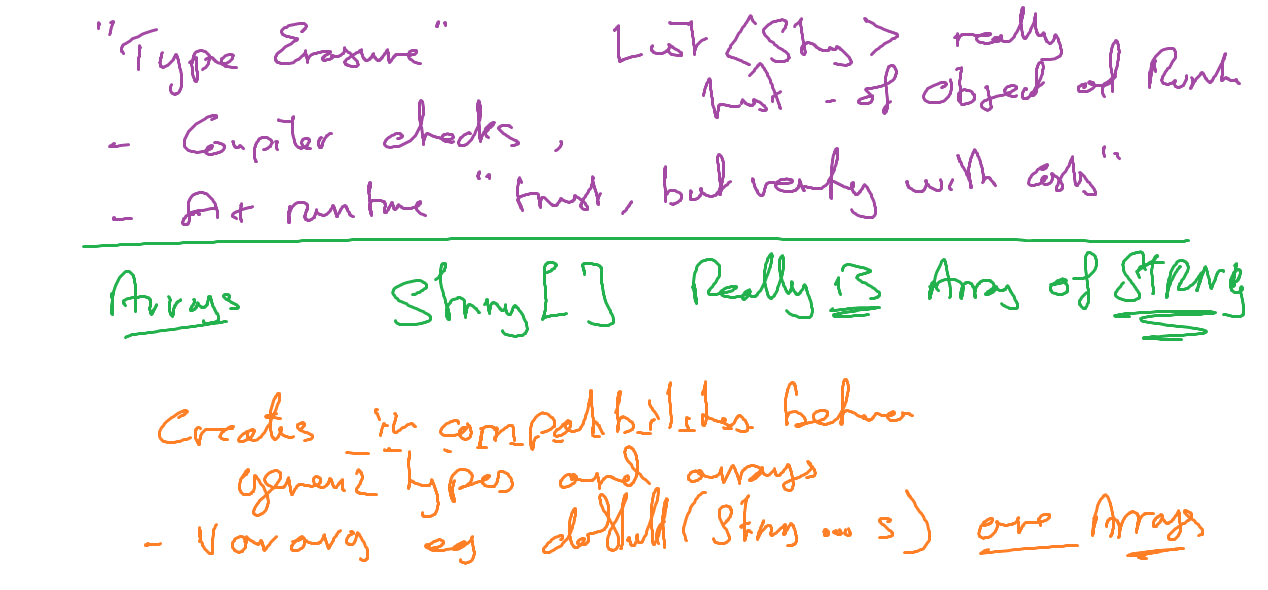 "Type Erasure"
List <String> really
just - of Object at Runtime
- Compiler checks,
- At runtime "trust, but verify with casts"
Arrays String [] Really is Array of STRING
Creates incompatibilities between
generic types and arrays
- Vararg eg doStuff (String ... s) are Arrays